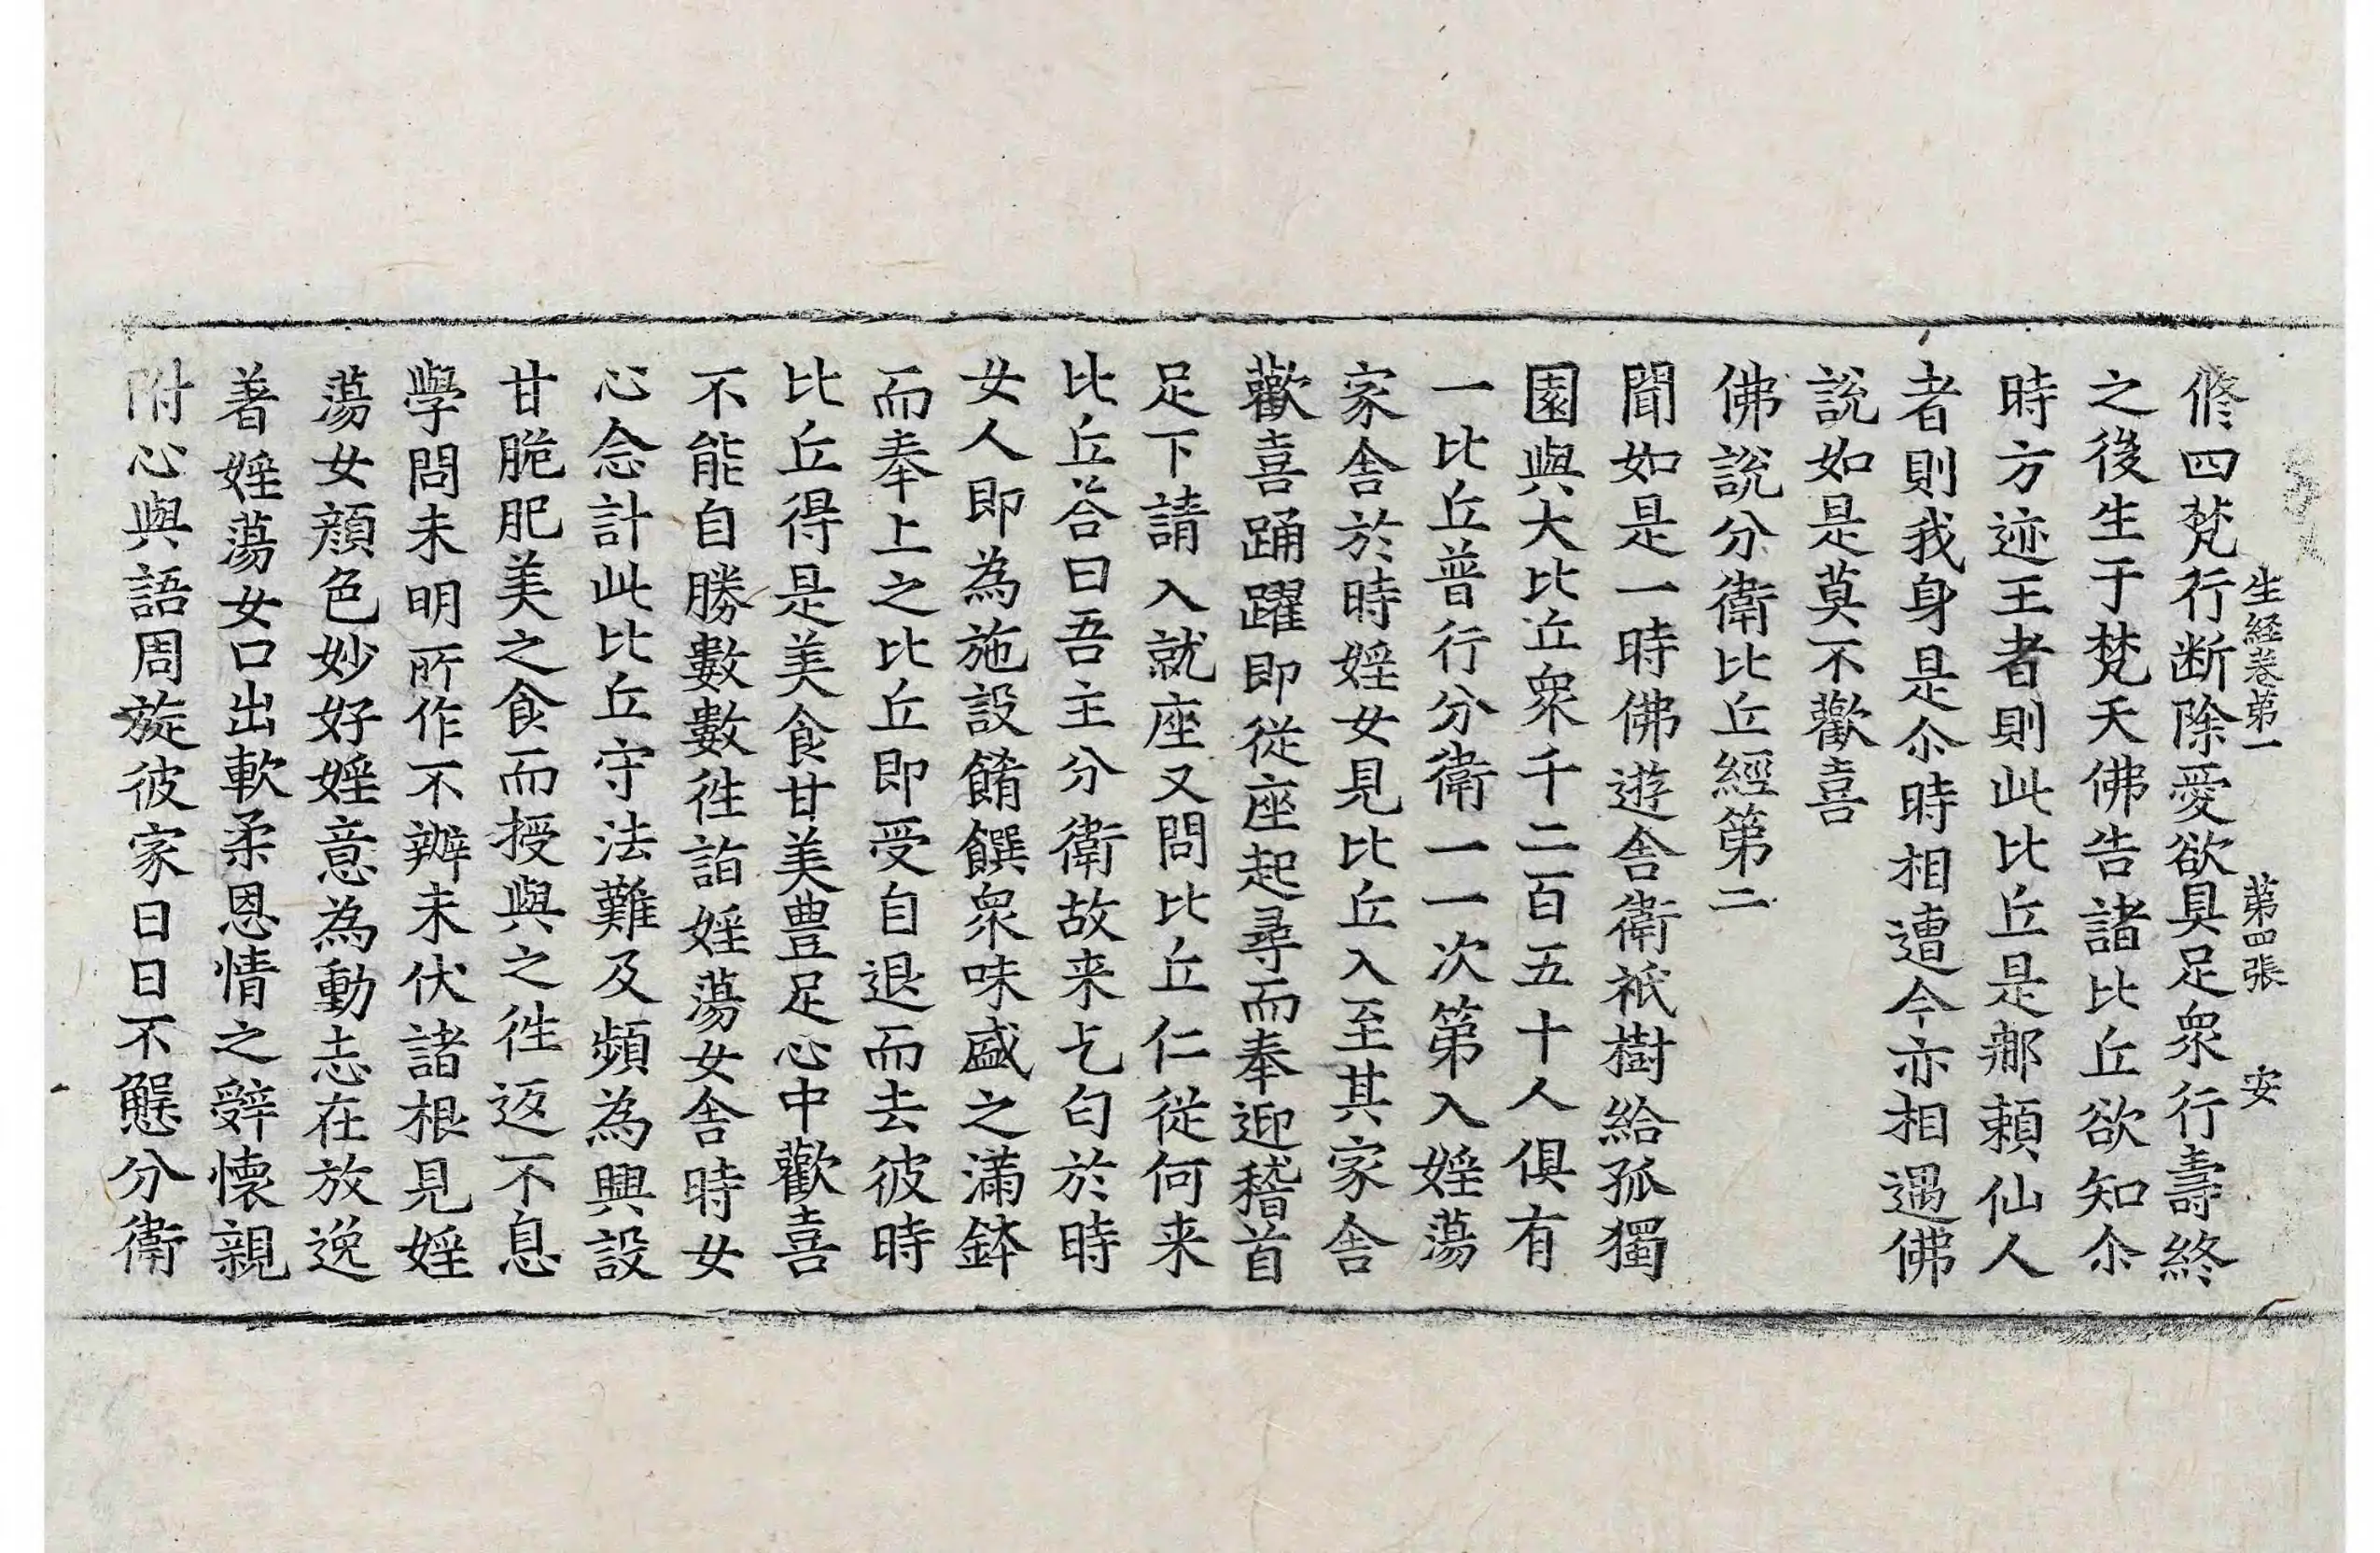 生経巻第一 第四張 安
脩四梵行断除愛欲具足衆行壽終
之後生于梵天佛告諸比丘欲知尒
時方迹王者則此比丘是𨚗頼仙人
者則我身是尒時相遭今亦相遇佛
說如是莫不歡喜
佛說分衛比丘經第二
聞如是一時佛遊舎衛祇樹給孤獨
園與大比丘衆千二百五十人俱有
一比丘普行分衛一一次第入婬蕩
家舎於時婬女見比丘入至其家舎
歡喜踊躍即従座起尋而奉迎稽首
足下請入就座又問比丘仁従何来
比丘荅曰吾主分衛故来乞匂於時
女人即為施設餚饌衆味盛之滿鉢
而奉上之比丘即受自退而去彼時
比丘得是美食甘美豊足心中歡喜
不能自勝數數徃詣婬蕩女舎時女
心念計此比丘守法難及頻為興設
甘脆肥美之食而授與之徃返不息
學問未明所作不辦未伏諸根見婬
蕩女顔色妙好婬意為動志在放逸
著婬蕩女口出軟柔恩情之辤懐親
附心與語周旋彼家日日不懈分衛